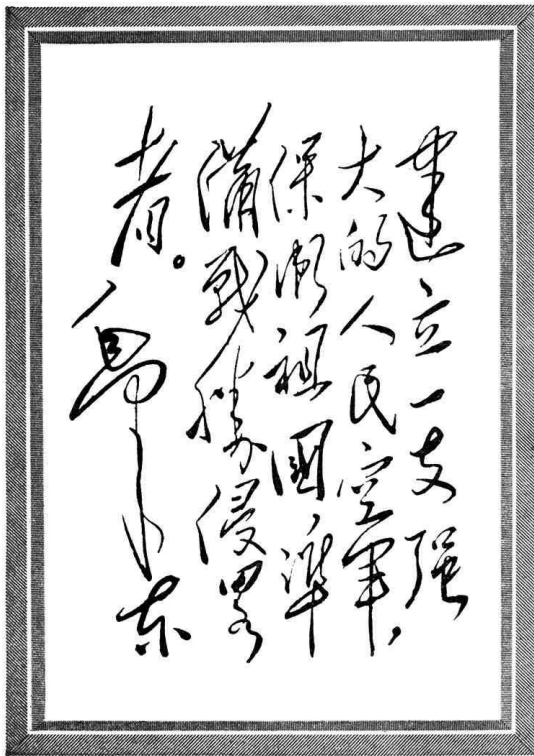 建立一支强
大的人民空軍，
保衛祖國，準
備戰勝侵畧
者。毛泽东